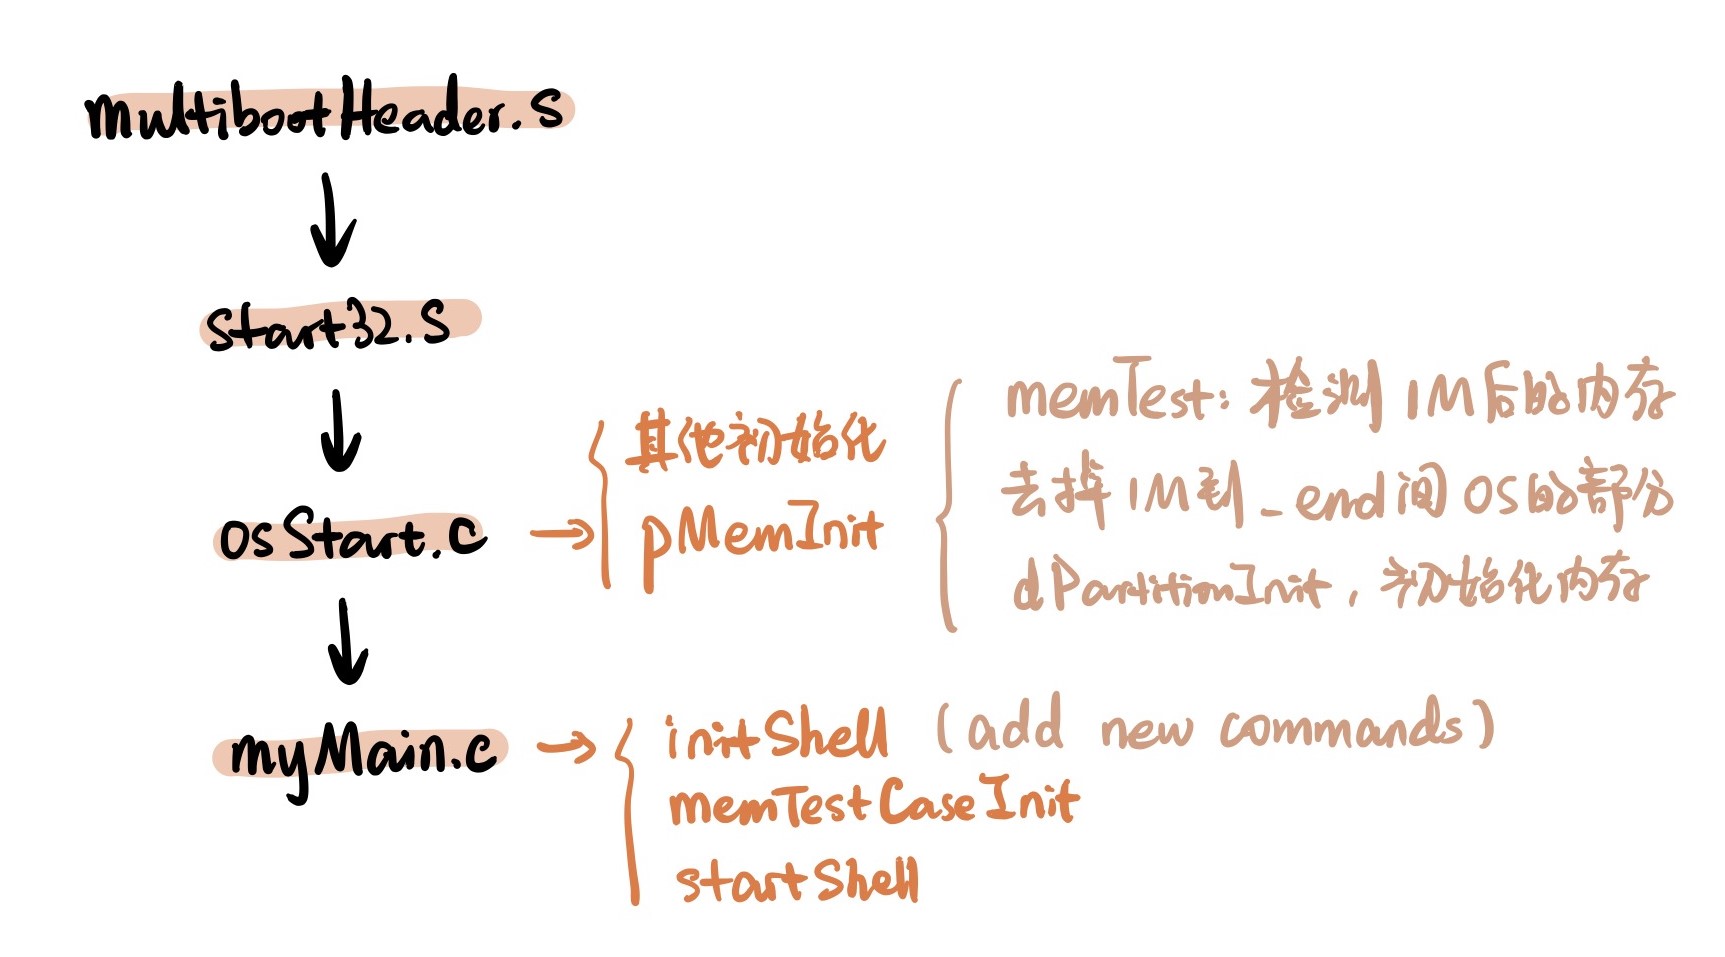 multibootHeader.S
start32.S
osStart.c
其他初始化
pMemInit
memTest: 检测 1M后的内存
去掉 1M到_end间 OS的部分
dPartitionInit, 初始化内存
myMain.c
initShell (add new commands)
memTestCaseInit
startShell